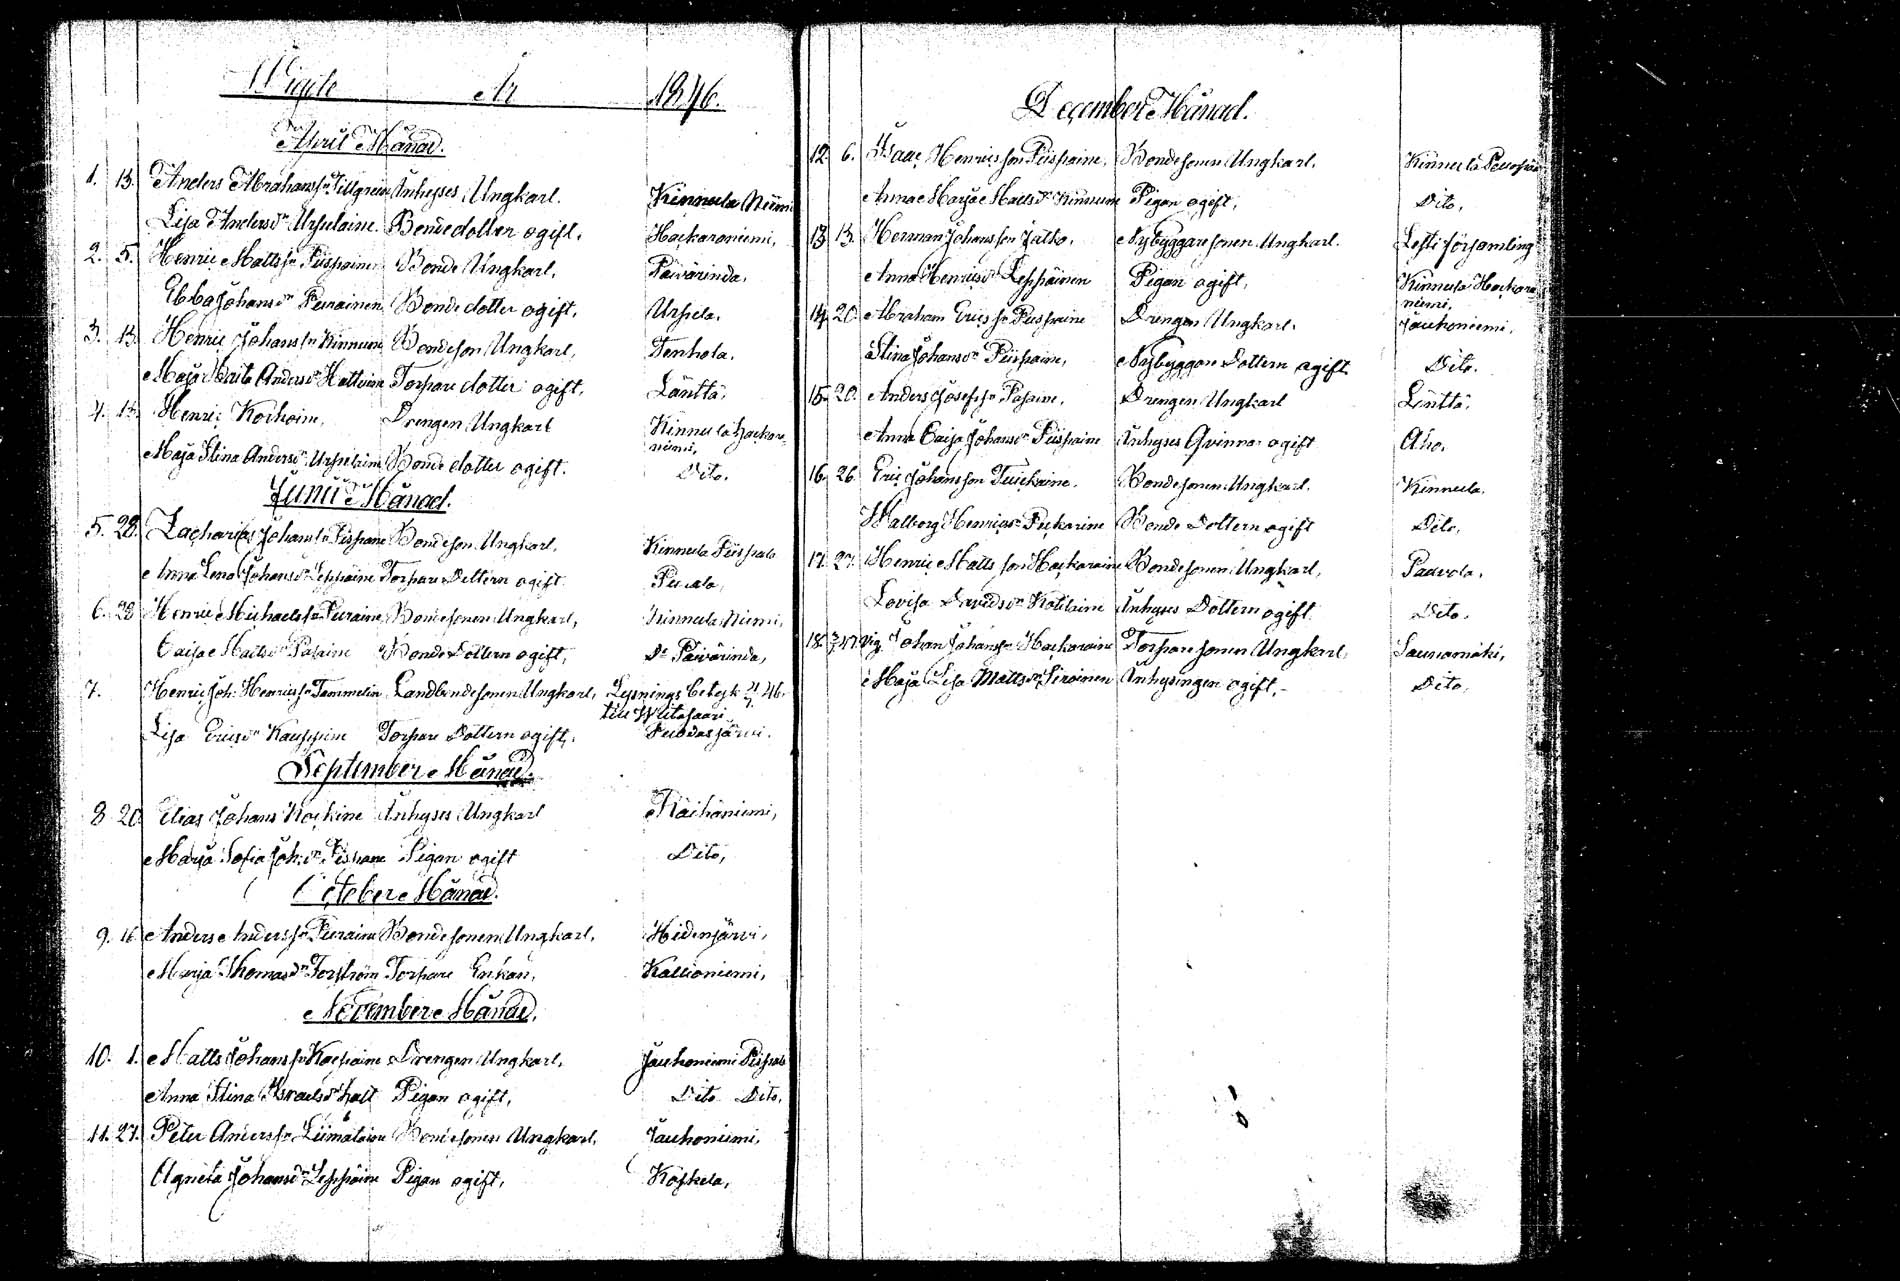 Wigde År 1846.
April Månad.
1. 13. Anders Abrahamss:n Tillgren Inhyses Ungkarl. Kinnula Niemi
Lisa Andersd:r Urpilaine Bonde dotter ogift, Hackaroniemi,
2. 5. Henric Mattss:n Piispainen Bonde Ungkarl, Päivärinda,
Ebba Johansd:r Purainen Bonde dotter ogift, Urpila,
3. 13. Henric Johanss:n Kinnune Bondeson Ungkarl, Tenhola,
Maja Brita Andersd:r Hattuinen Torpare dotter ogift, Länttä,
4. 13. Henric Korhoine, Drengen Ungkarl Kinnula Hackaro-
niemi,
Maja Stina Andersd:r Urpilaine Bonde dotter ogift. Dito.
Junii Månad.
5. 28. Zacharias Johanss:n Pispane Bondeson Ungkarl, Kinnula Piispala
Anna Lena Johansd:r Leppäine Torpare Dottern ogift Purala,
6. 28 Henric Michaelss:n Puraine Bondesonen Ungkarl, Kinnula Niemi,
Caisa Mattsd:r Pasaine Bonde Dottern ogift, D:o Päivärinda,
7. Henric Joh: Henricss:n Tammelin Landbondesonen Ungkarl, Lysnings betyg 21/7 46.
till Witasaari
Lisa Ericsd:r Kauppine Torpare Dottern ogift, Suodasjärvi.
September Månad.
8 20 Elias Johans Kockine Inhyses Ungkarl Räihäniemi,
Maja Sofia Joh:d:r Pispane Pigan ogift Dito,
October Månad.
9. 16 Anders Anderss:n Puraine Bondesonen Ungkarl, Hidenjärvi,
Marja Thomasd:r Forström Torpare Enkan, Kallioniemi,
November Månad.
10. 1. Matts Johanss:n Korpaine Drengen Ungkarl, Jauhoniemi Piispala
Anna Stina Israelsd:r Hatt Pigan ogift, Dito Dito,
11. 27. Peter Anderss:n Liimataine Bondesonen Ungkarl, Jauhoniemi,
Agneta Johansd:r Leppäine Pigan ogift, Koskela,
December Månad.
12. 6. Isaac Henricsson Piispaine, Bondesonen Ungkarl. Kinnula
Anna Marja Mattsd:r Kinnune Pigan ogift, Dito,
13 13. Herman Johansson Jatko, Nybyggare sonen Ungkarl. Lesti församling
Anna Henricsd:r Leppäinen Pigan ogift, Kinnula Hackaro
niemi,
14. 20. Abraham Ericss:n Piispaine Drengen Ungkarl. Jauhoniemi,
Stina Johansd:r Piispaine, Nybyggare Dottern ogift Dito.
15. 20. Anders Josefss:n Pasaine, Drengen Ungkarl Länttä,
Anna Caisa Johansd:r Piispaine Inhyses Qvinna ogift Aho,
16. 26. Eric Johansson Turckaine. Bondesonen Ungkarl. Kinnula.
Walborg Henricsd:r Puckarine Bonde Dottern ogift Dito,
17. 27. Henric Mattsson Hackaraine Bondesonen Ungkarl, Pauvola,
Lovisa Davidsd:r Kotilaine Inhyses Dottern ogift Dito,
18. Vig. Johan Johanss:n Hackaraine Torpare sonen Ungkarl, Saunamäki,
Maja Lisa Mattsd:r Piroinen Inhysingen ogift, Dito,